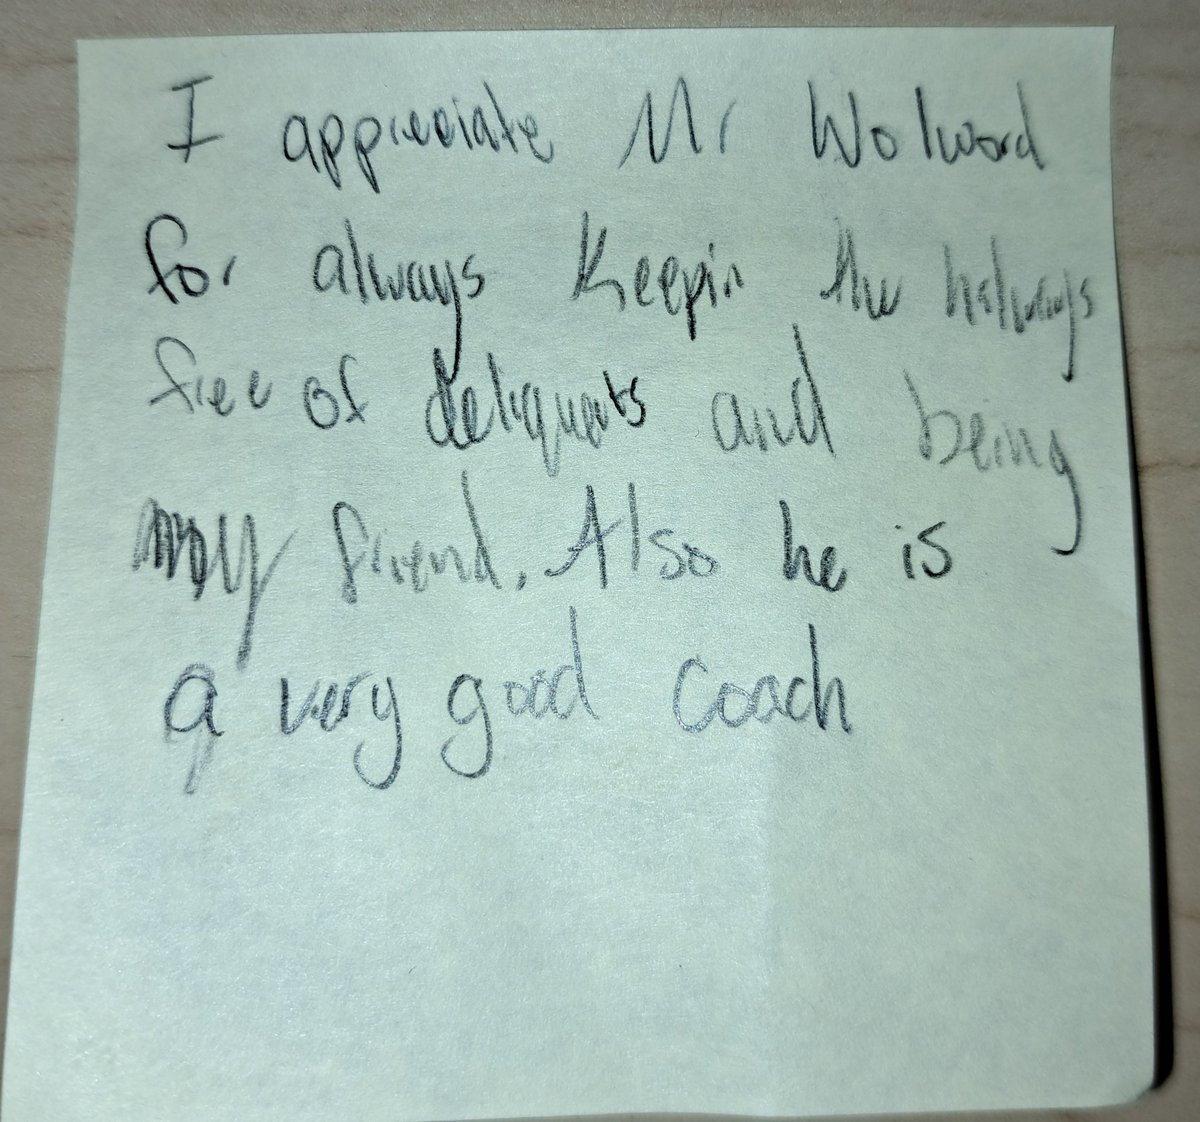 I appreciate Mr Wolword
for always Keepin the halways
free of deliquents and being
my friend. Also he is
a very good coach